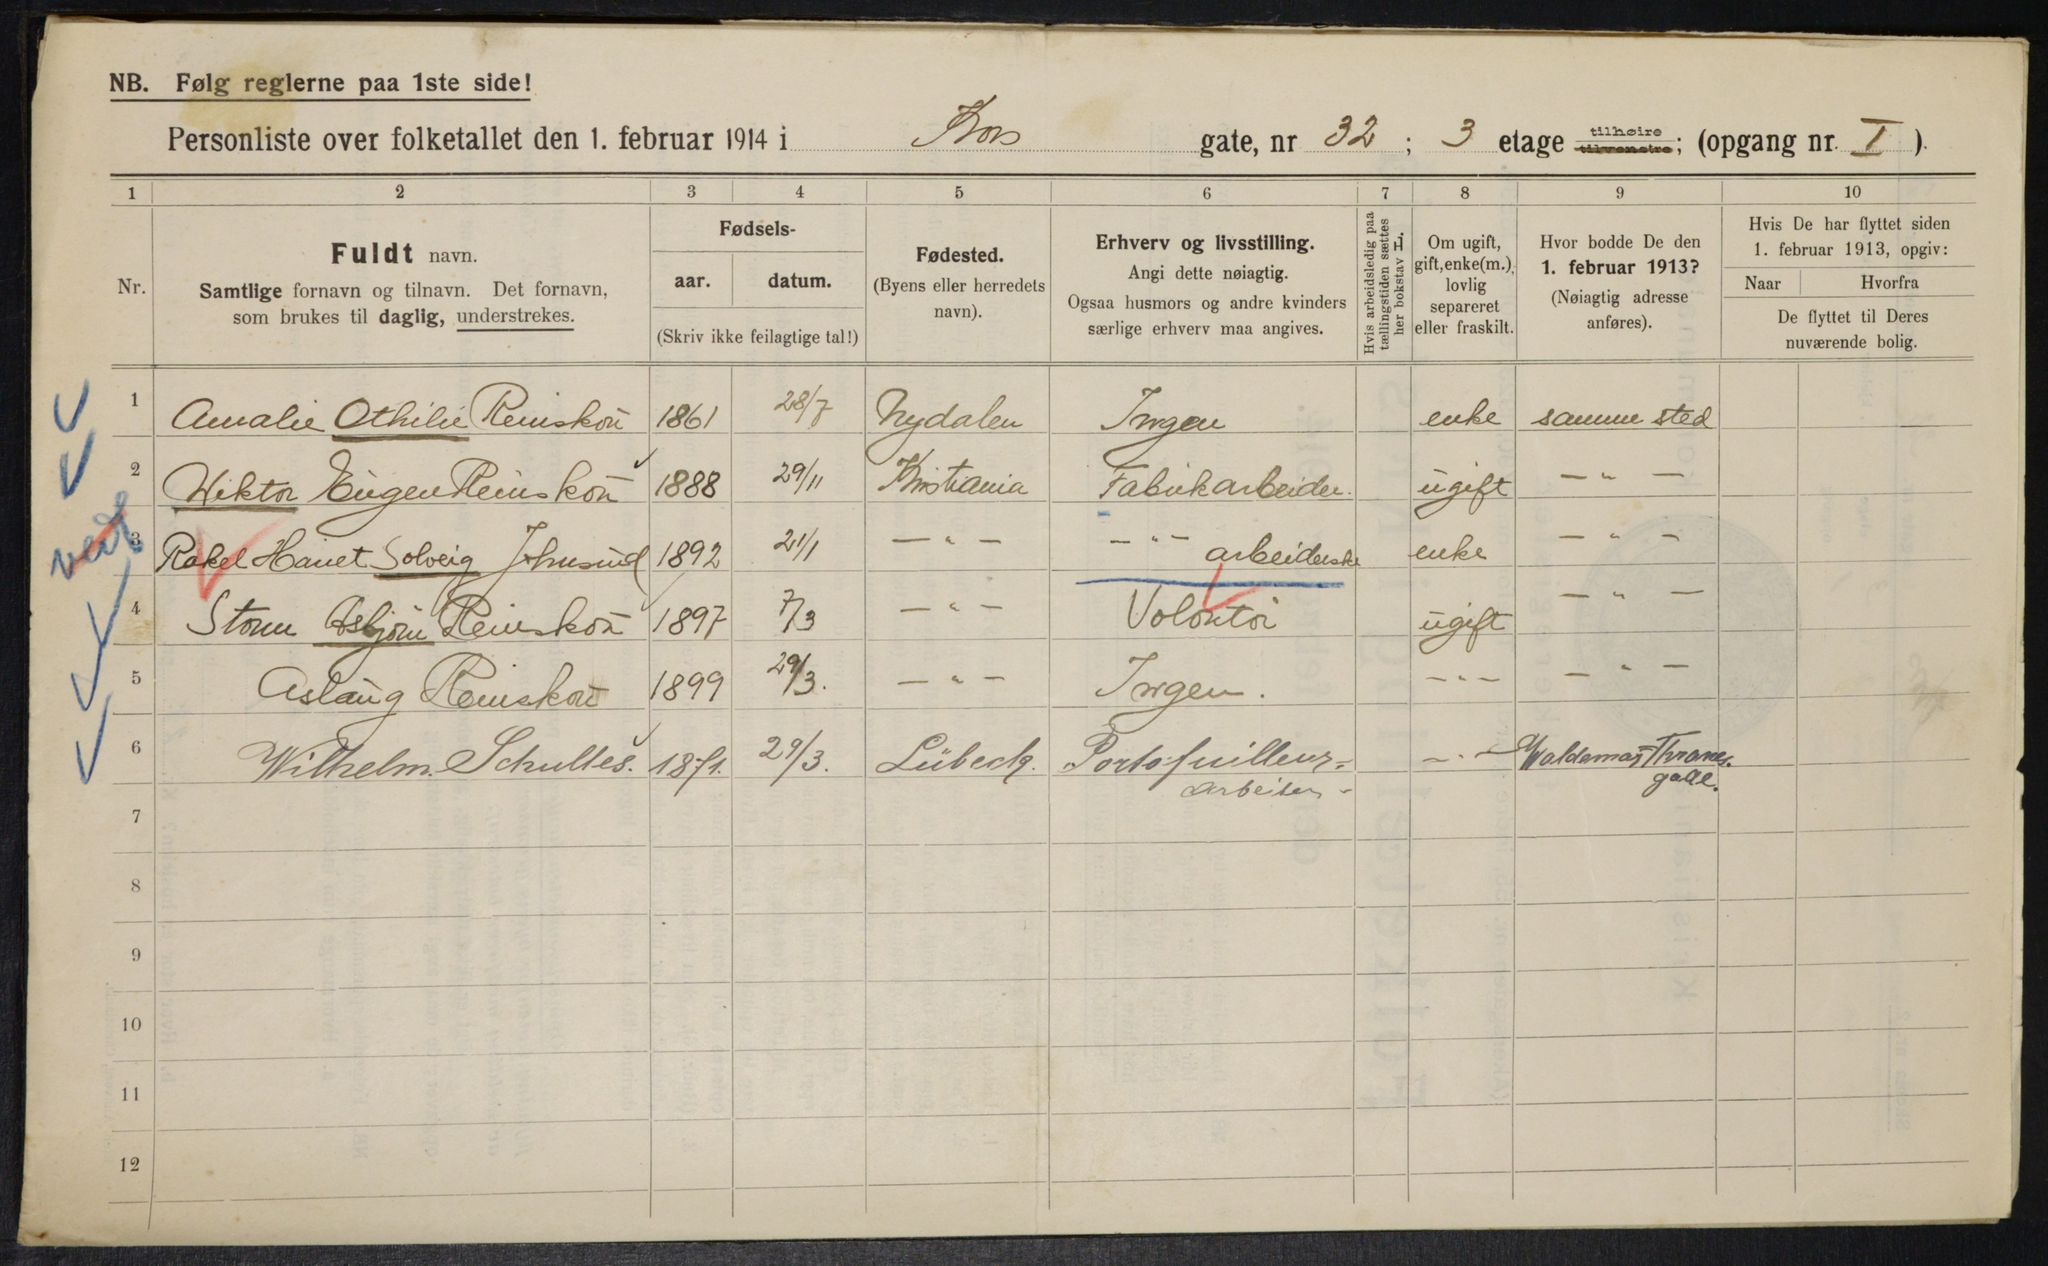 NB. Følg reglerne paa 1ste side!
Personliste over folketallet den 1. februar 1914 i Kors gate, nr 32 ; 3 etage tilhøire tilvenstre; (opgang nr. I ).
1 2 3 4 5 6 7 8 9 10
Nr.
Fuldt navn.
Samtlige fornavn og tilnavn. Det fornavn,
som brukes til daglig, understrekes.
Fødsels-
aar. datum.
(Skriv ikke feilagtige tal!)
Fødested.
(Byens eller herredets
navn).
Erhverv og livsstilling.
Angi dette nøiagtig.
Ogsaa husmors og andre kvinders
særlige erhverv maa angives.
Hvis arbeidsledig paa
tællingstiden sættes
her bokstav L.
Om ugift,
gift, enke(m.),
lovlig
separeret
eller fraskilt.
Hvor bodde De den
1. februar 1913?
(Nøiagtig adresse
anføres).
Hvis De har flyttet siden
1. februar 1913, opgiv:
Naar Hvorfra
De flyttet til Deres
nuværende bolig.
1 Amalie Othilie Reinskou 1861 28/7 Nydalen Ingen enke samme sted
2 Wiktor Eugen Reinskou 1888 29/11 Kristiania Fabrikarbeider. ugift — " —
3 Rakel Solveig 1892 21/1 — " — — " — arbeiderske enke — " —
4 Storm Asbjørn Reinskou 1897 7/3 — " — Volontør ugift — " —
5 Aslaug Reinskou 1899 29/3. — " — Ingen. — " — — " —
6 Wilhelm. Schultes. 1871. 29/3. Lübeck. Portofuilleur= — " — Waldemar Thranes.
arbeiter - gate.
7
8
9
10
11
12